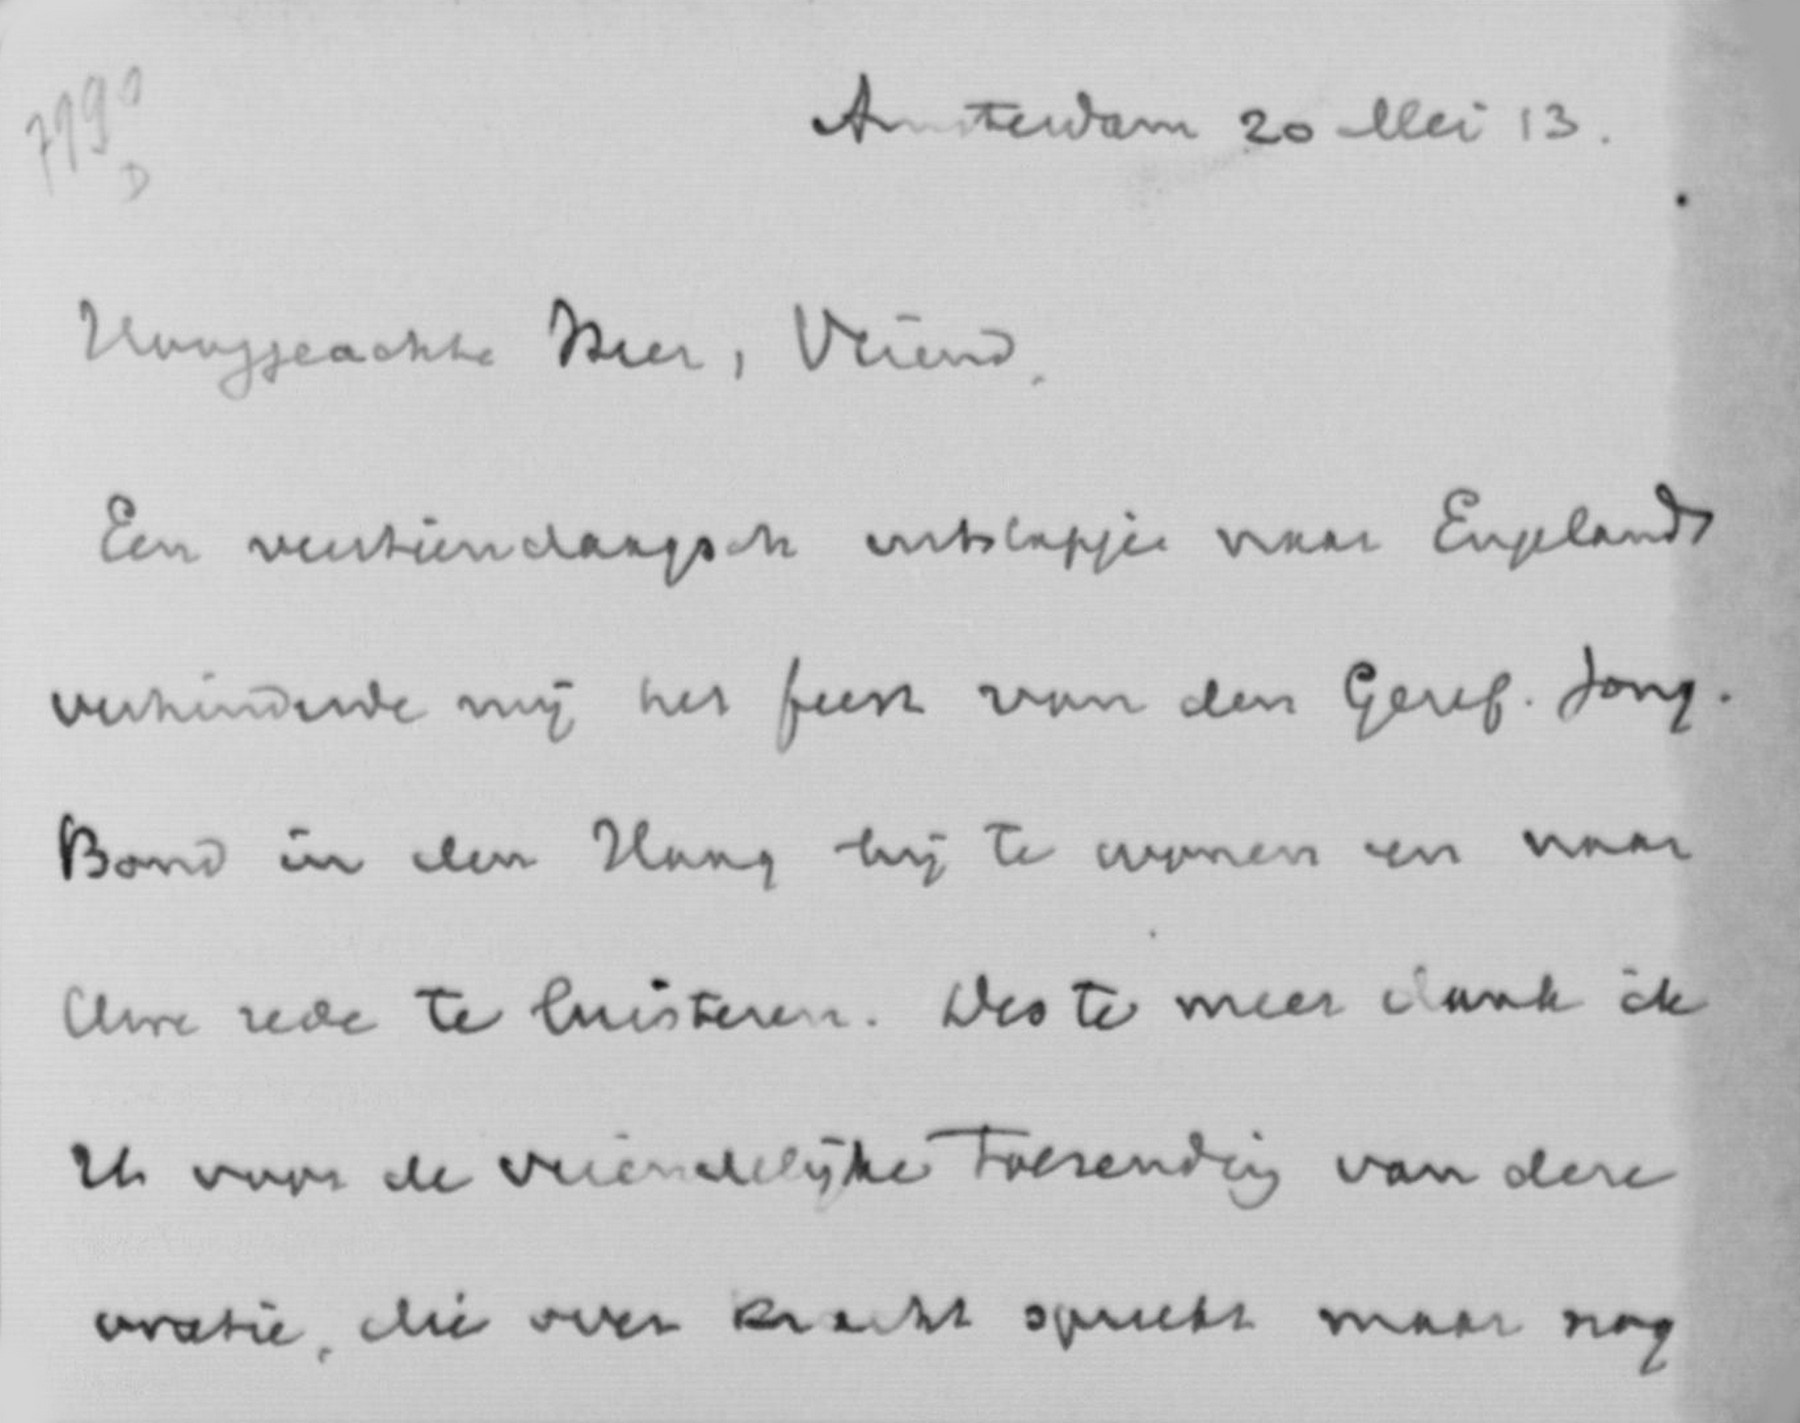 799
D
Amsterdam 20 Mei 13.
Hooggeachte Heer, Vriend,
Een veertiendaagsch uitstapje naar Engeland
verhinderde mij het feest van den Geref. Jong.
Bond in den Haag bij te wonen en naar
Uwe rede te luisteren. Des te meer dank ik
U voor de vriendelijke toezending van deze
oratie, die over kracht spreekt maar nog